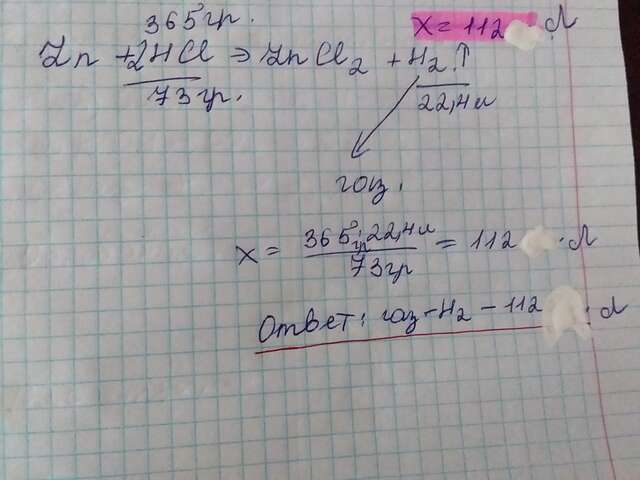 365гр. x = 112 л
Zn + 2HCl ⇒ ZnCl₂ + H₂↑
73гр. 22,4л
газ.
x = 365гр · 22,4л / 73гр = 112 · л
Ответ: газ - H₂ - 112 · л